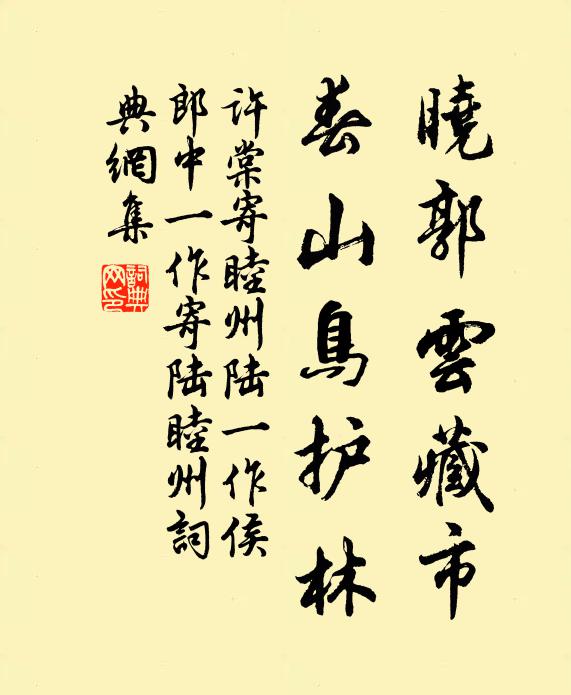 曉郭雲藏市
春山鳥护林
許棠寄睦州陸一作侯
郎中一作寄陸睦州詞
典網集
詞典
网印